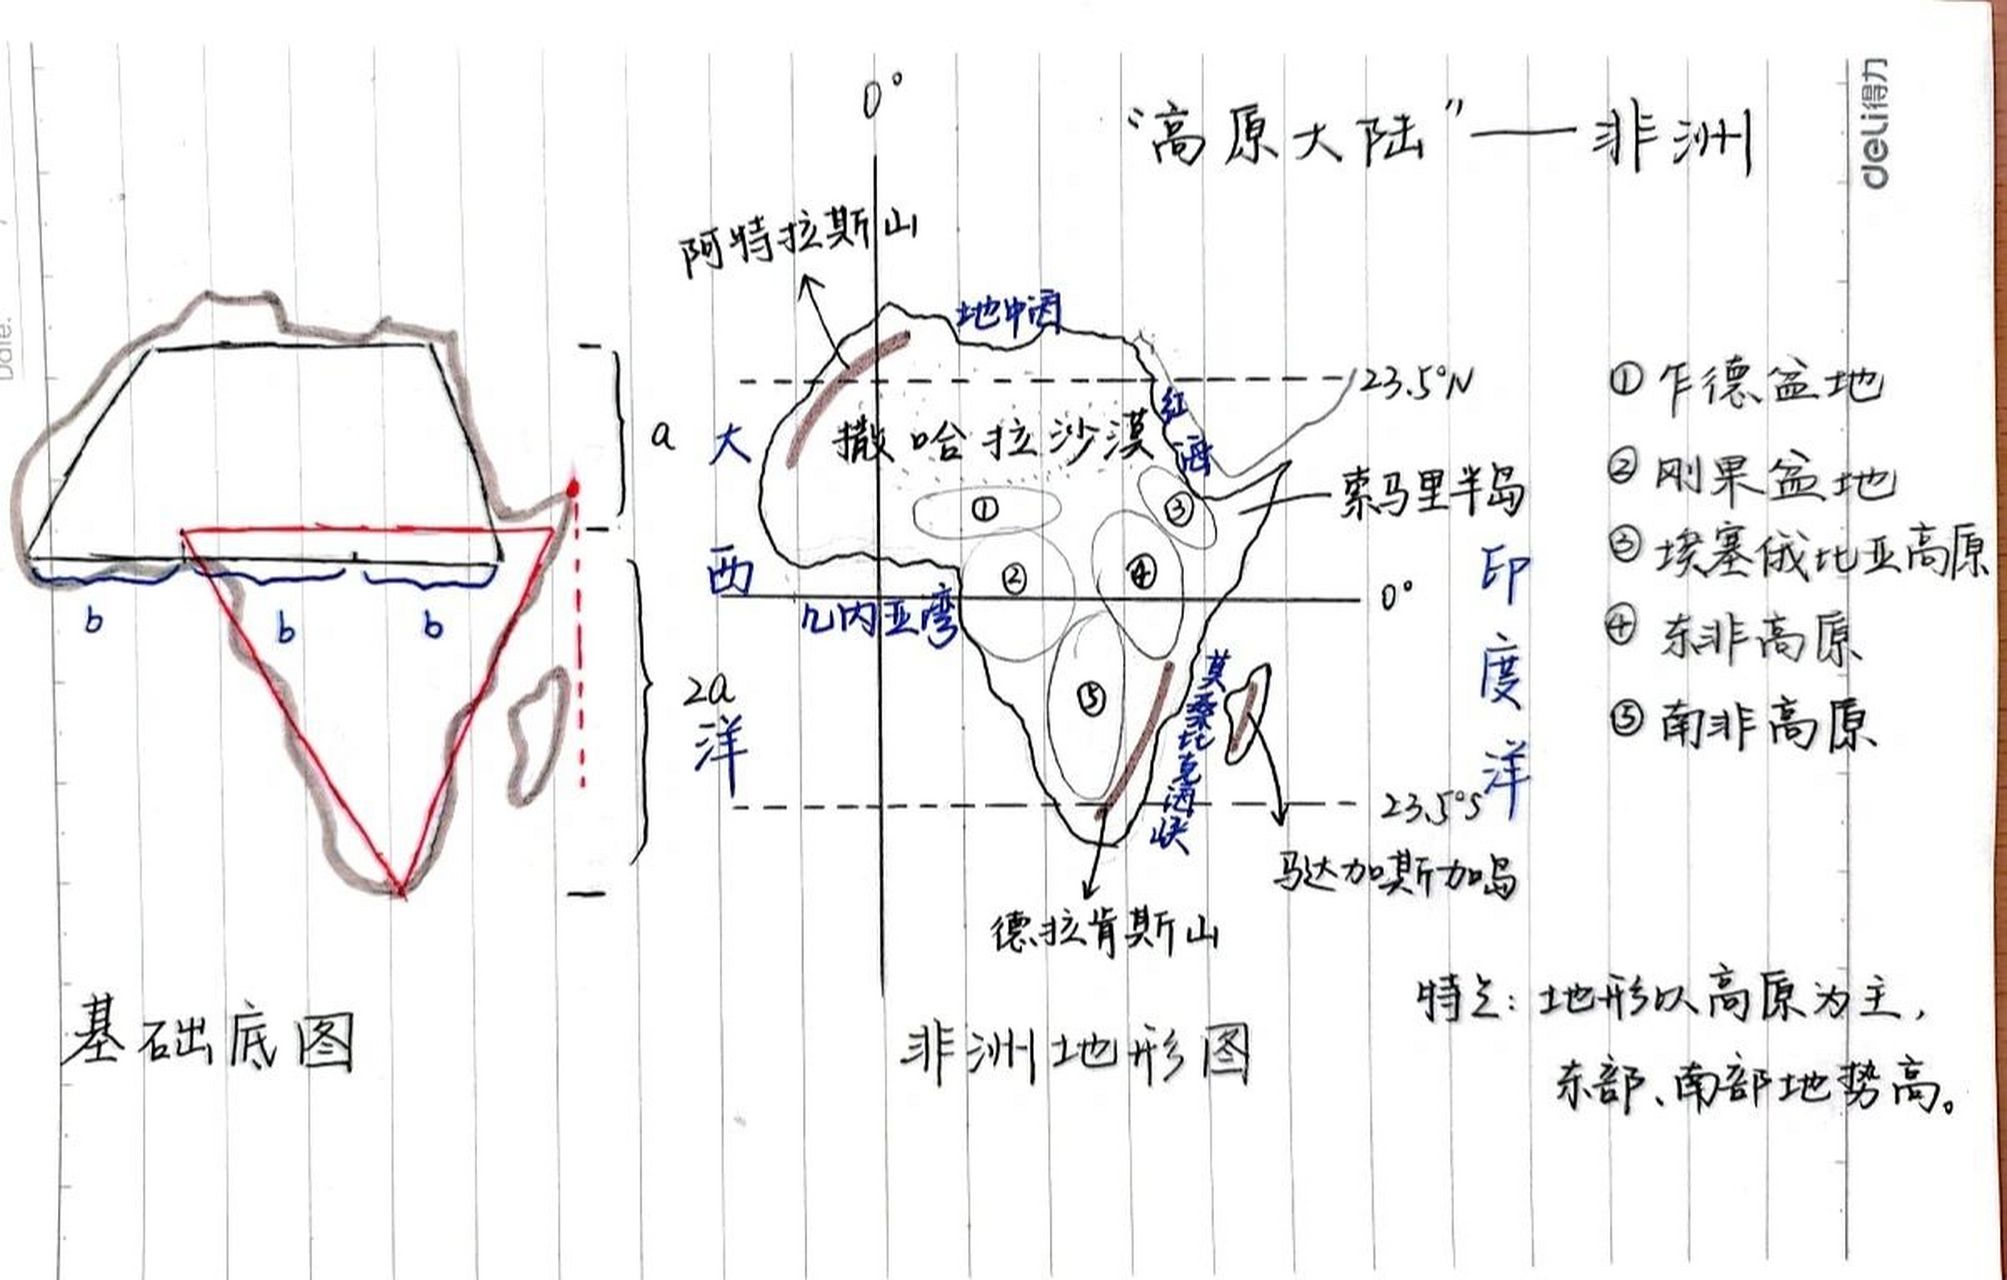 deli得力
Date:
0°
“高原大陆”——非洲
阿特拉斯山
地中海
23.5°N
a
大
西
洋
撒哈拉沙漠
红海
索马里半岛
①
②
③
④
⑤
b
b
b
几内亚湾
0°
印
度
洋
2a
莫桑比克海峡
23.5°S
马达加斯加岛
德拉肯斯山
① 乍德盆地
② 刚果盆地
③ 埃塞俄比亚高原
④ 东非高原
⑤ 南非高原
基础底图
非洲地形图
特点：地形以高原为主，
东部、南部地势高。